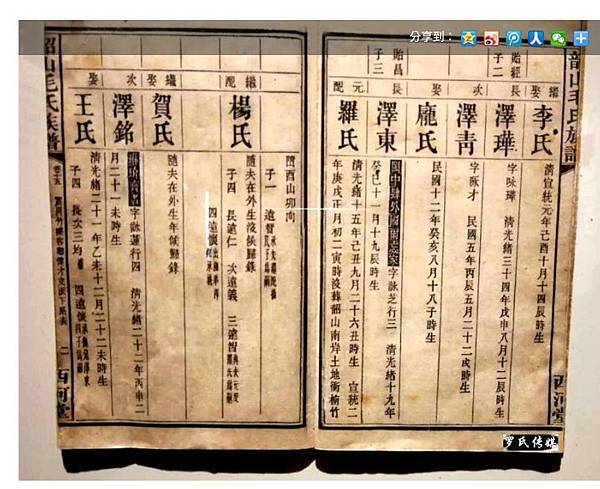 分享到：
韶山毛氏族譜
繼娶
李氏
清宣統元年己酉十月十四辰時生
貽經子二
長
澤璍
字咏璋 清光緒三十四年戊申八月十二辰時生
次
澤青
字咏才 民國五年丙辰五月二十二戌時生
繼娶
龐氏
民國十二年癸亥八月十八子時生
貽昌子三
長
澤東
字詠芝行三 清光緒十九年
癸巳十一月十九辰時生
元配
羅氏
清光緒十五年己丑九月二十六丑時生 宣統二
年庚戌正月初二寅時沒葬韶山南岸土地衝楠竹
西河堂
酉山卯向
子一 遠智
繼配
楊氏
隨夫在外生沒俟歸錄
子四 長遠仁 次遠義 三遠智
四遠懷
繼娶
賀氏
隨夫在外生年俟歸錄
次
澤銘
字詠蓮行四 清光緒二十二年丙申二
月二十一未時生
娶
王氏
清光緒二十一年乙未十二月二十二未時生
子四 長次三均
四遠懷
韶山毛氏族譜
卷十五
二
西河堂
罗氏传媒